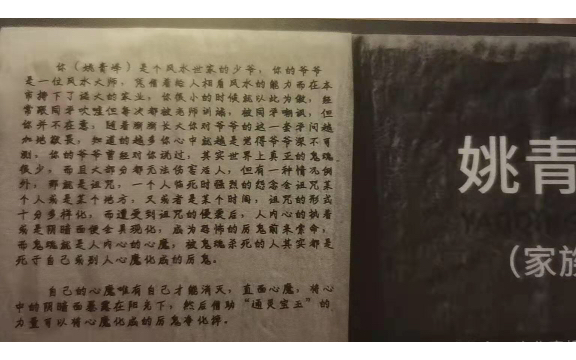 你（姚青博）是个风水世家的少爷，你的爷爷
是一位风水大师，凭借着给人相看风水的能力而在本
市挣下了诺大的家业，你很小的时候就以此为傲，经
常跟同学吹嘘但每次都被老师训端，被同学嘲讽，但
你并不在意，随着渐渐长大你对爷爷的这一套学问越
加地敬畏，知道的越多你心中就越是觉得爷爷深不可
测，你的爷爷曾经对你说过，其实世界上真正的鬼魂
很少，而且大部分都无法伤害活人，但有一种情况例
外，那就是诅咒，一个人临死时强烈的怨念会诅咒某
个人或是某个地方，又或者是某个时间，诅咒的形式
十分多样化，而遭受到诅咒的侵袭后，人内心的执着
或是阴暗面便会具现化，成为恐怖的厉鬼前来索命，
而鬼魂就是人内心的心魔，被鬼魂杀死的人其实都是
死于自己或别人心魔化成的厉鬼。
自己的心魔唯有自己才能消灭，直面心魔，将心
中的阴暗面暴露在阳光下，然后借助“通灵宝玉”的
力量可以将心魔化成的厉鬼净化掉。
姚青
（家族